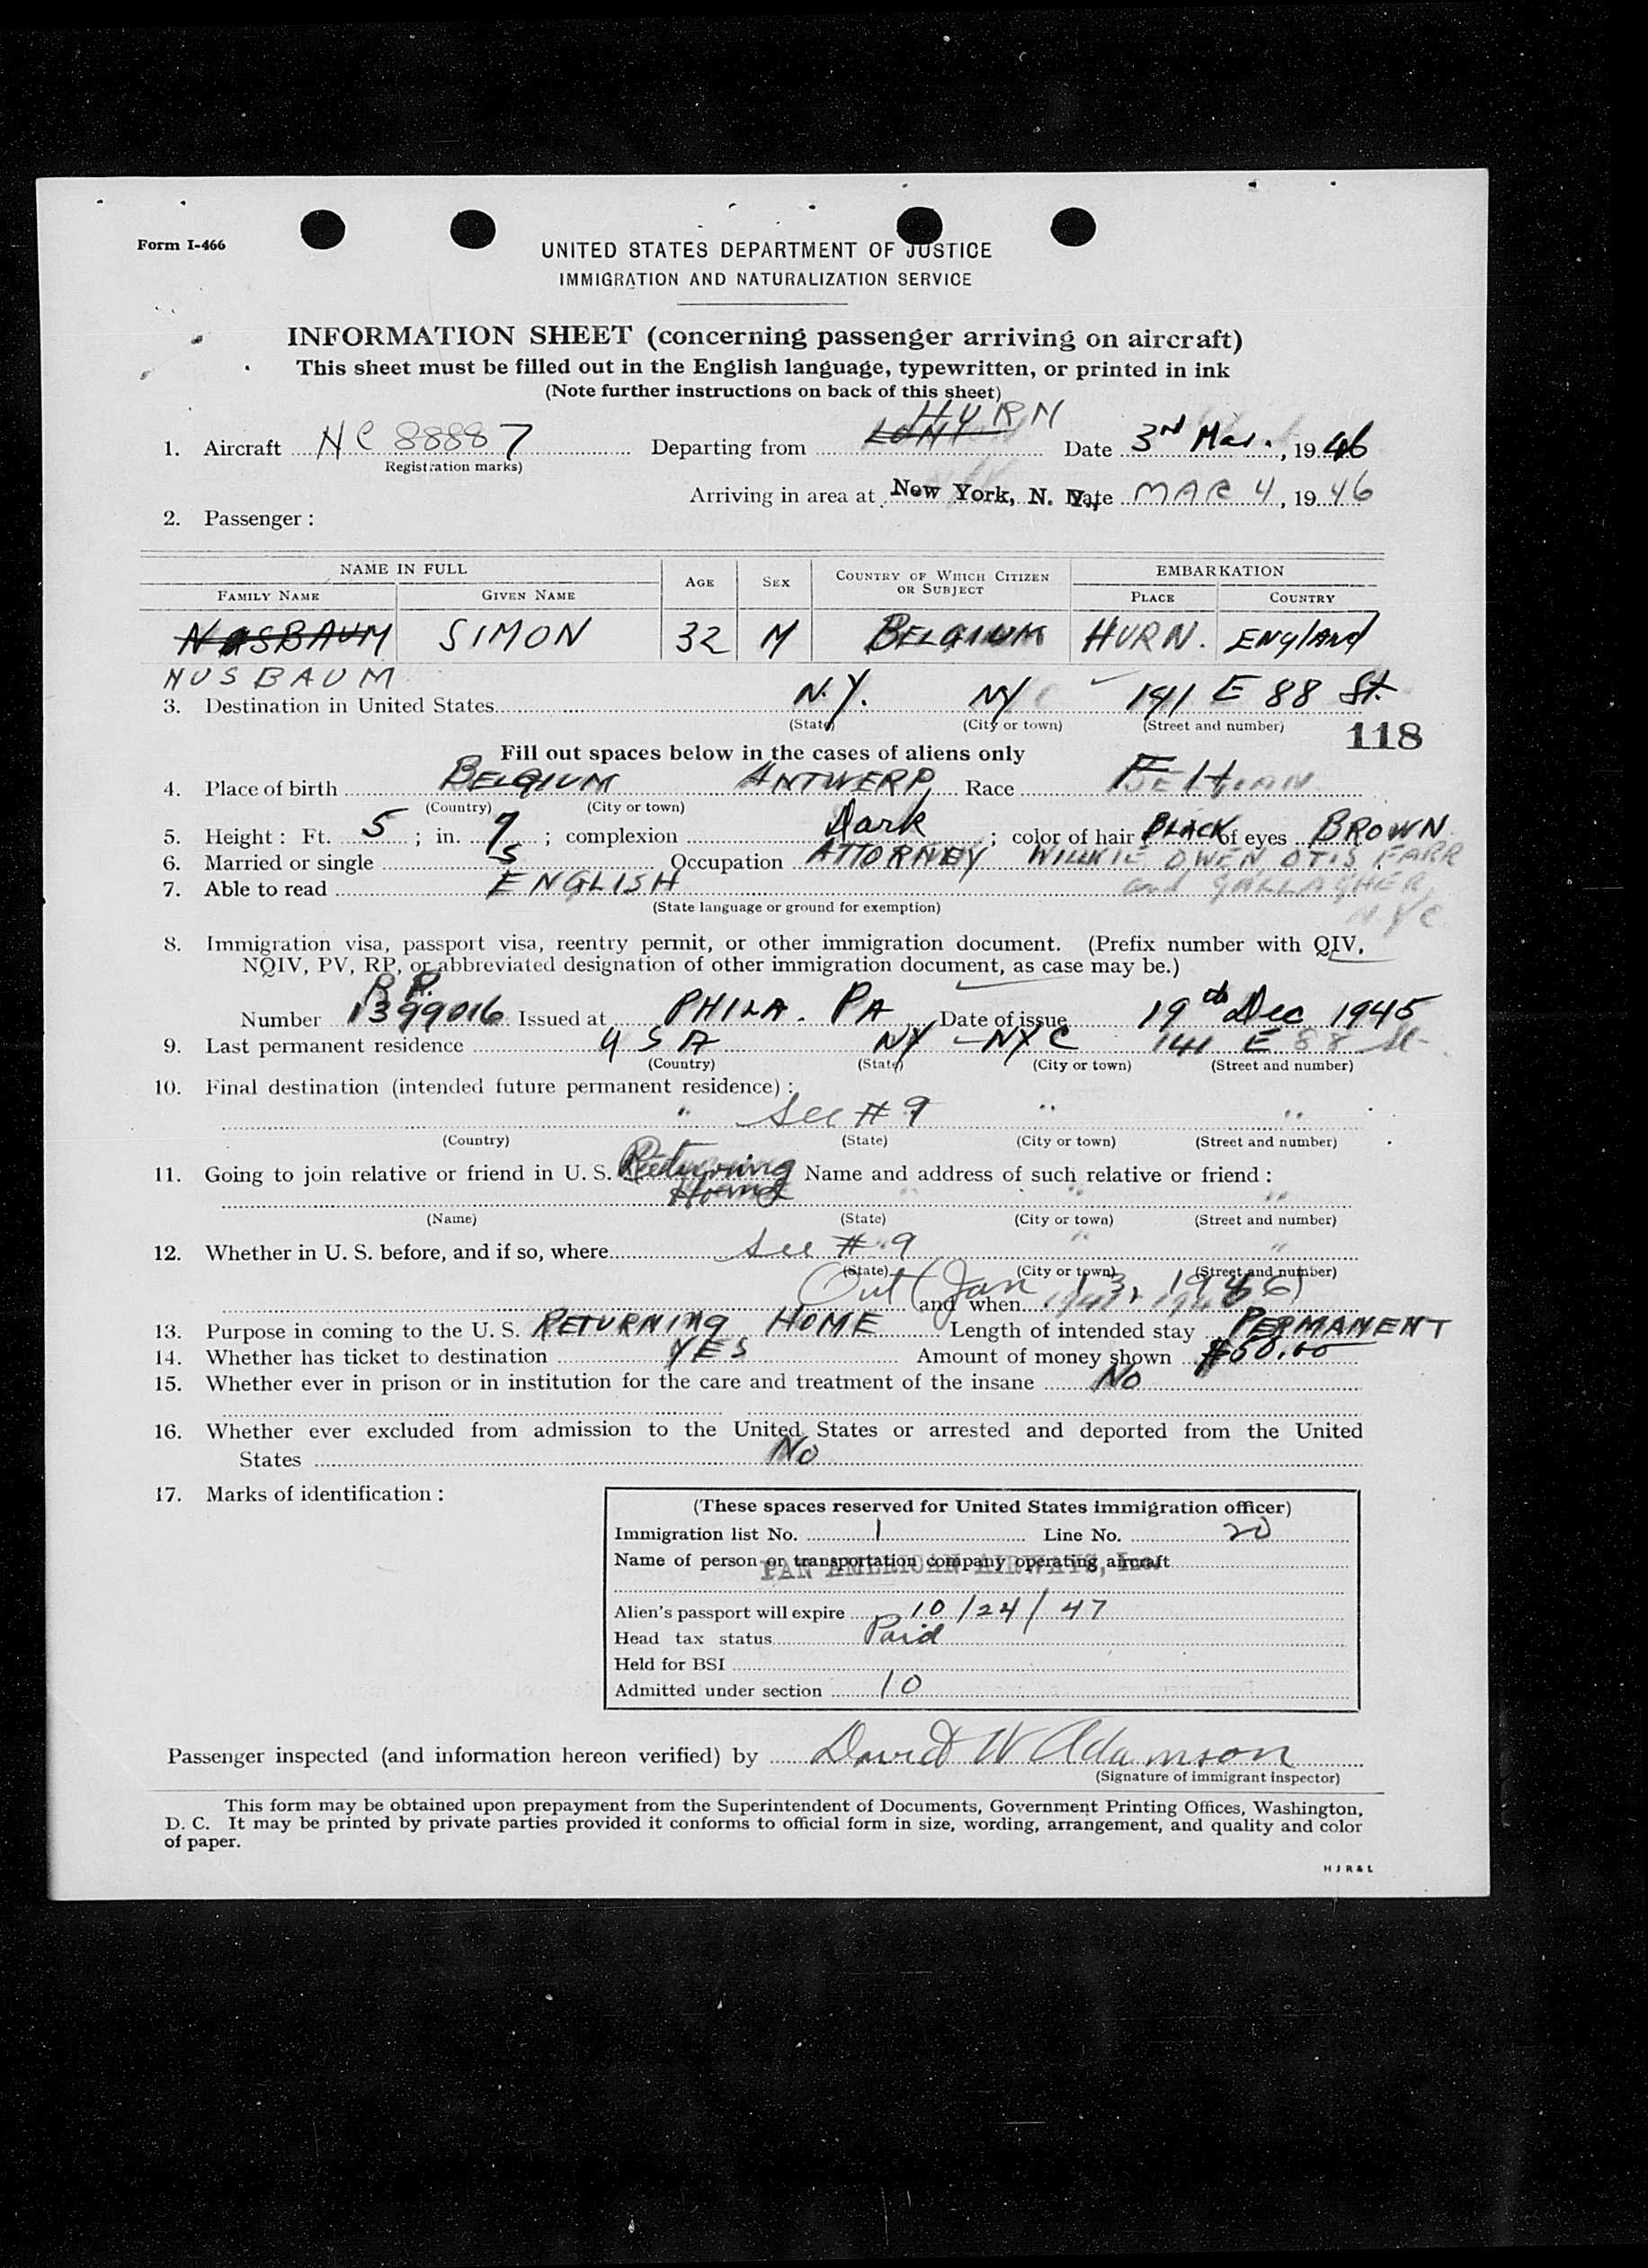 Form I-466
UNITED STATES DEPARTMENT OF JUSTICE
IMMIGRATION AND NATURALIZATION SERVICE
INFORMATION SHEET (concerning passenger arriving on aircraft)
This sheet must be filled out in the English language, typewritten, or printed in ink
(Note further instructions on back of this sheet)
HURN
1. Aircraft NC 88887 Departing from Date 3rd Mar., 1946
(Registration marks)
Arriving in area at New York, N. Y., Date MAR 4, 1946
2. Passenger:
NAME IN FULL AGE SEX COUNTRY OF WHICH CITIZEN OR SUBJECT EMBARKATION
FAMILY NAME GIVEN NAME PLACE COUNTRY
NASBAUM SIMON 32 M BELGIUM HURN. ENGlAND
NUSBAUM
3. Destination in United States N.Y. NYC 141 E 88 St.
(State) (City or town) (Street and number)
118
Fill out spaces below in the cases of aliens only
4. Place of birth BELGIUM ANTWERP Race
(Country) (City or town)
5. Height: Ft. 5; in. 9; complexion Dark; color of hair BLACK of eyes BROWN
6. Married or single S Occupation ATTORNEY WILLKIE OWEN OTIS FARR
7. Able to read ENGLISH and GALLAGHER,
(State language or ground for exemption) NYC
8. Immigration visa, passport visa, reentry permit, or other immigration document. (Prefix number with QIV,
NQIV, PV, RP, or abbreviated designation of other immigration document, as case may be.)
R P.
Number 1399016 Issued at PHILA. PA Date of issue 19th Dec 1945
9. Last permanent residence USA NY - NYC 141 E 88 St.
(Country) (State) (City or town) (Street and number)
10. Final destination (intended future permanent residence):
" See # 9 " "
(Country) (State) (City or town) (Street and number)
11. Going to join relative or friend in U. S. Returning Name and address of such relative or friend:
Home
(Name) (State) (City or town) (Street and number)
12. Whether in U. S. before, and if so, where See # 9 " "
(State) (City or town) (Street and number)
Out (Jan 13, 1946)
and when
13. Purpose in coming to the U. S. RETURNING HOME Length of intended stay PERMANENT
14. Whether has ticket to destination YES Amount of money shown $50.00
15. Whether ever in prison or in institution for the care and treatment of the insane No
16. Whether ever excluded from admission to the United States or arrested and deported from the United
States No
17. Marks of identification:
(These spaces reserved for United States immigration officer)
Immigration list No. 1 Line No. 20
Name of person or transportation company operating aircraft
PAN AMERICAN AIRWAYS, Inc.
Alien's passport will expire 10/24/47
Head tax status Paid
Held for BSI
Admitted under section 10
Passenger inspected (and information hereon verified) by David W Adamson
(Signature of immigrant inspector)
This form may be obtained upon prepayment from the Superintendent of Documents, Government Printing Offices, Washington,
D. C. It may be printed by private parties provided it conforms to official form in size, wording, arrangement, and quality and color
of paper.
H J R & L